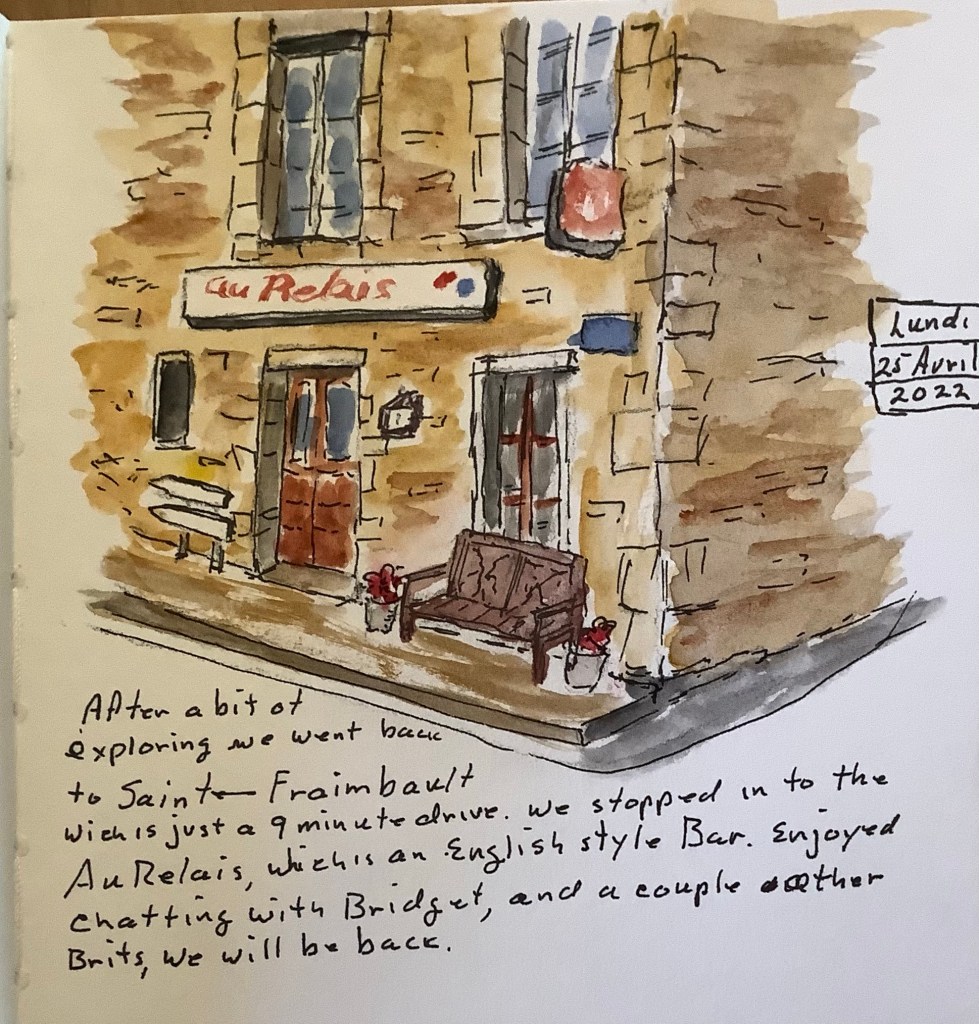 au Relais
Lundi
25 Avril
2022
After a bit of
exploring we went back
to Saint- Fraimbault
wich is just a 9 minute drive. we stopped in to the
Au Relais, which is an English style Bar. Enjoyed
chatting with Bridget, and a couple other
Brits, we will be back.